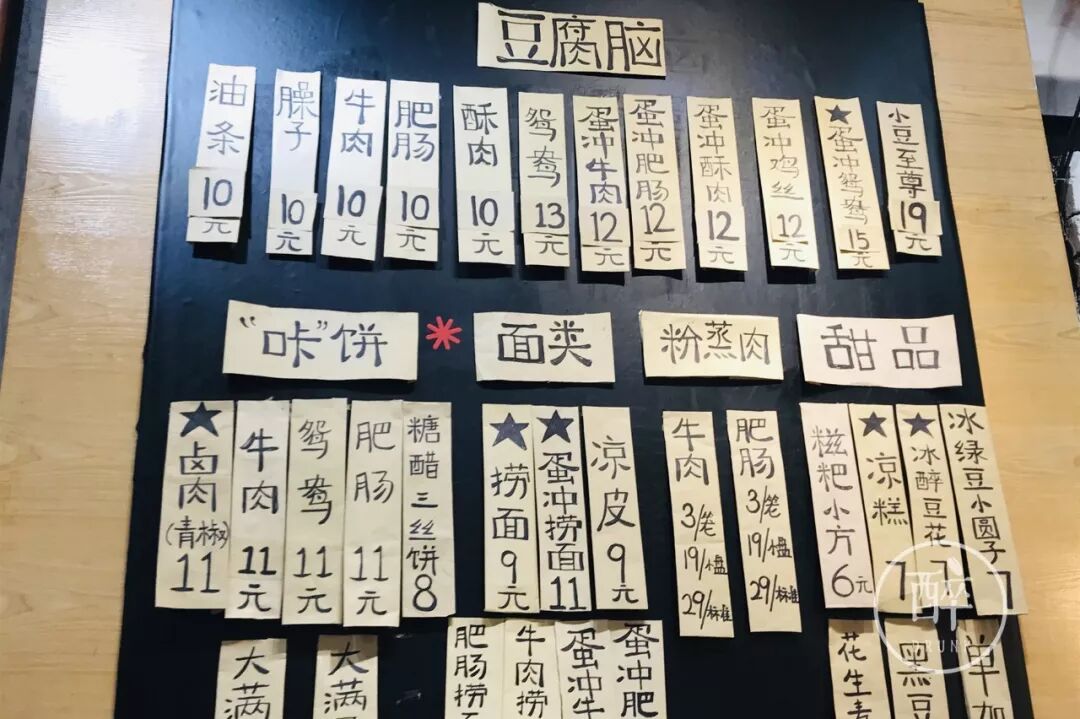 豆腐脑
油条 10元
臊子 10元
牛肉 10元
肥肠 10元
酥肉 10元
鸳鸯 13元
蛋冲牛肉 12元
蛋冲肥肠 12元
蛋冲酥肉 12元
蛋冲鸡丝 12元
★蛋冲鸳鸯 15元
小豆至尊 19元
“咔”饼
面类
粉蒸肉
甜品
★卤肉(青椒) 11
牛肉 11元
鸳鸯 11元
肥肠 11元
糖醋三丝饼 8
★捞面 9元
★蛋冲捞面 11
凉皮 9元
牛肉 3/笼 19/小盘 29/标准
肥肠 3/笼 19/小盘 29/标准
糍粑小方 6元
★凉糕 7
★冰醉豆花 7
冰绿豆小圆子 7
大满
大满
肥肠捞
牛肉捞
蛋冲牛
蛋冲肥
花生
黑豆
单加
醉